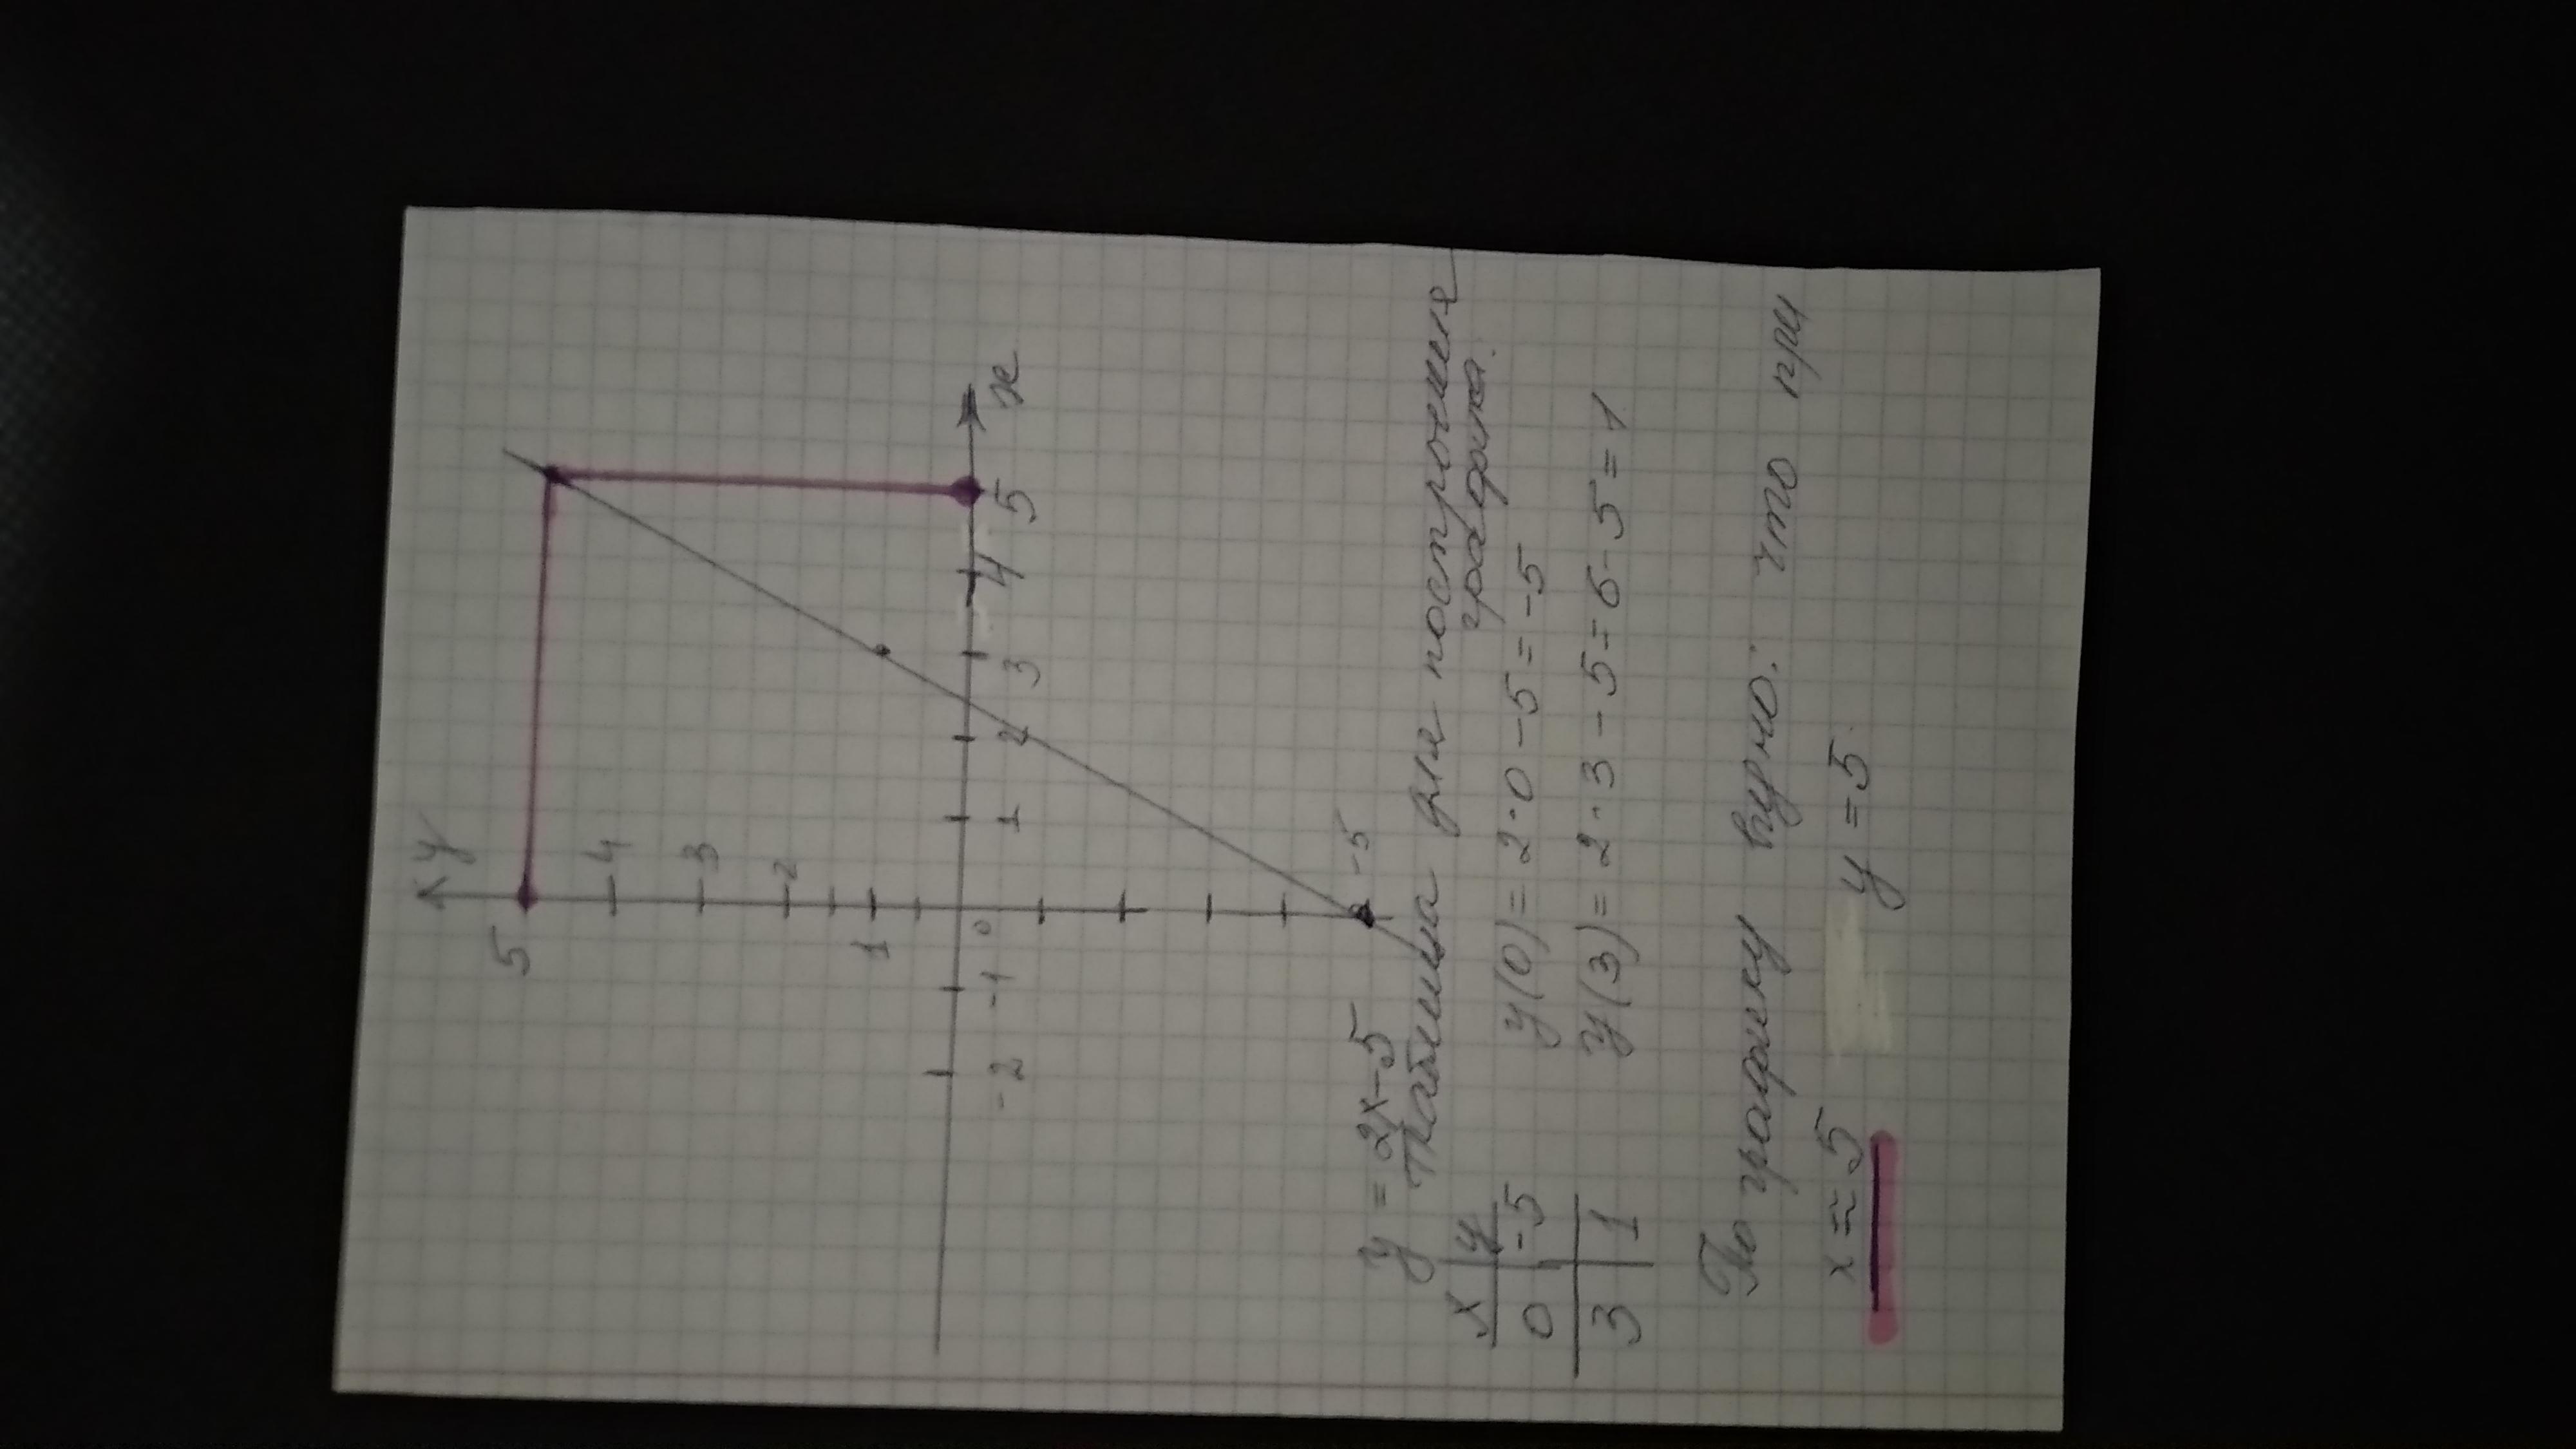 y
5
4
3
2
1
-2 -1 0 1 2 3 4 5 x
-5
y = 2x-5
таблица для построения
графика.
x y
0 -5 y(0)= 2·0 -5= -5
3 1 y(3)= 2·3 -5= 6-5=1
По графику видно: что при
x = 5 y = 5.